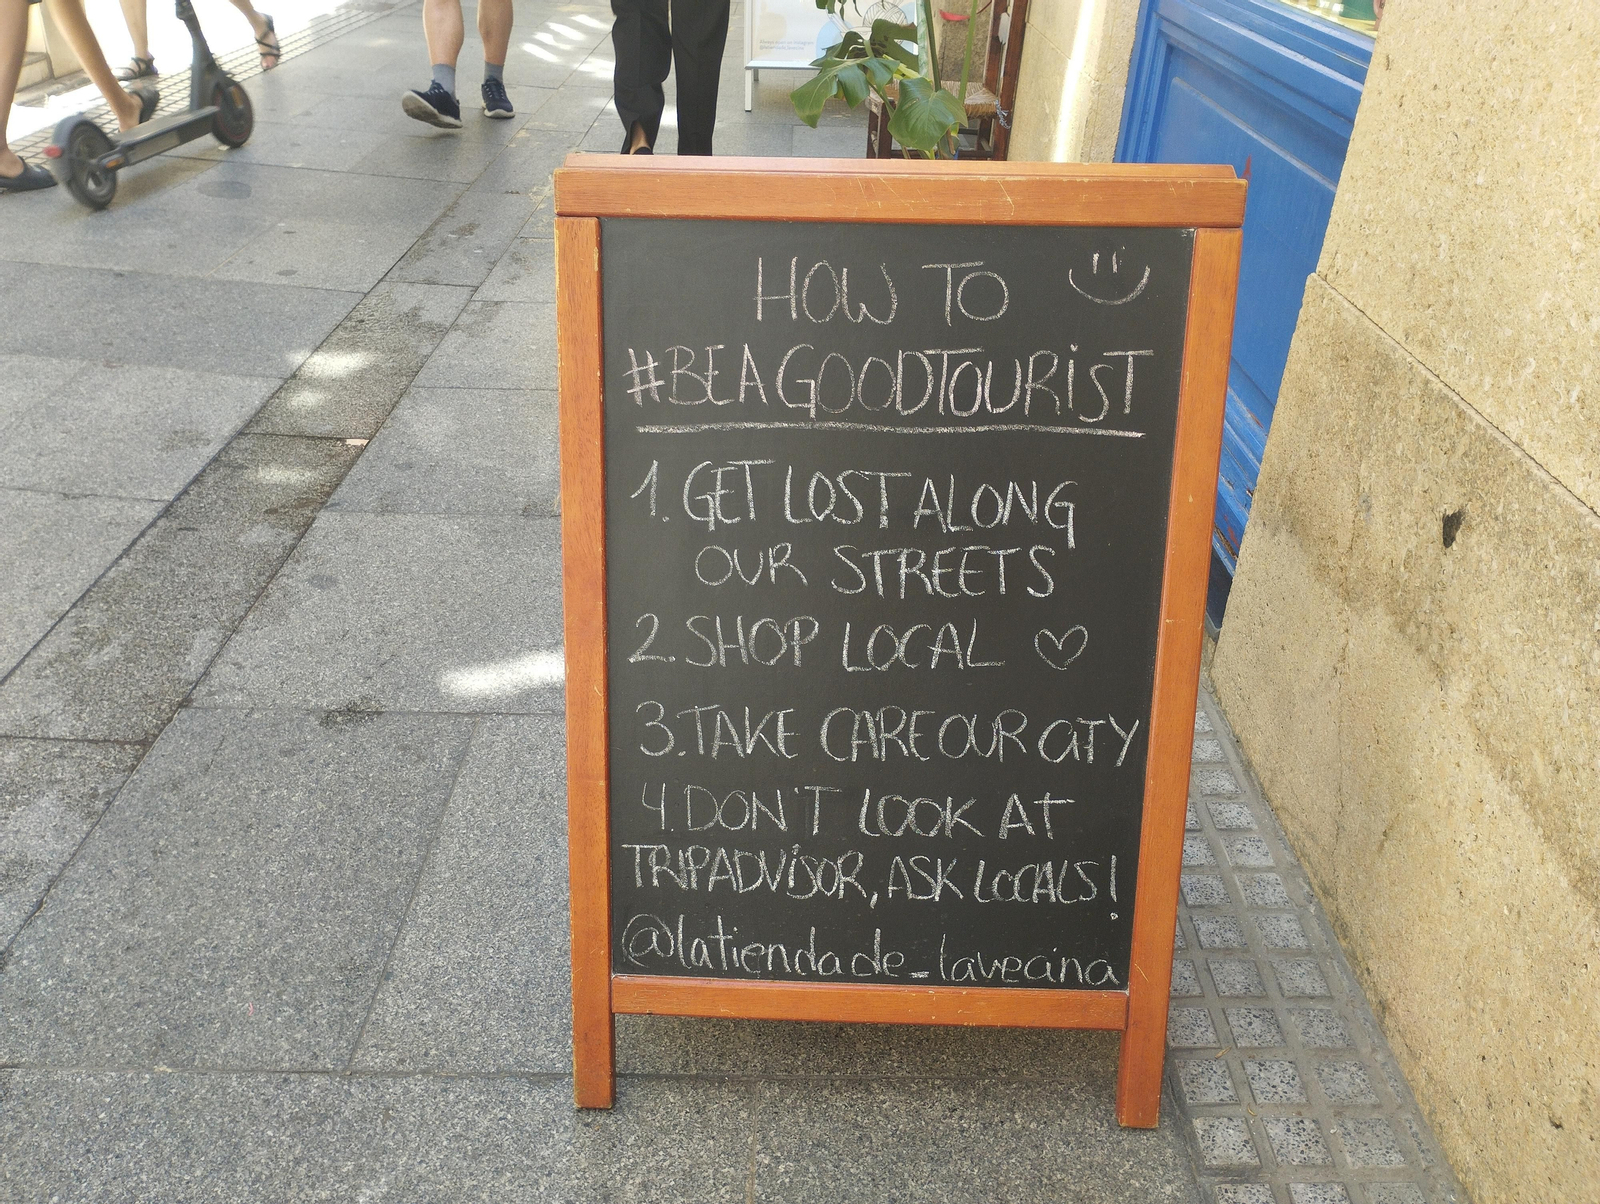 HOW TO
#BEAGOODTOURiST
1. GET LOST ALONG
OUR STREETS
2. SHOP LOCAL ♡
3. TAKE CARE OUR CITY
4. DON'T LOOK AT
TRIPADViSOR, ASK LOCALS!
@latiendade_laveina